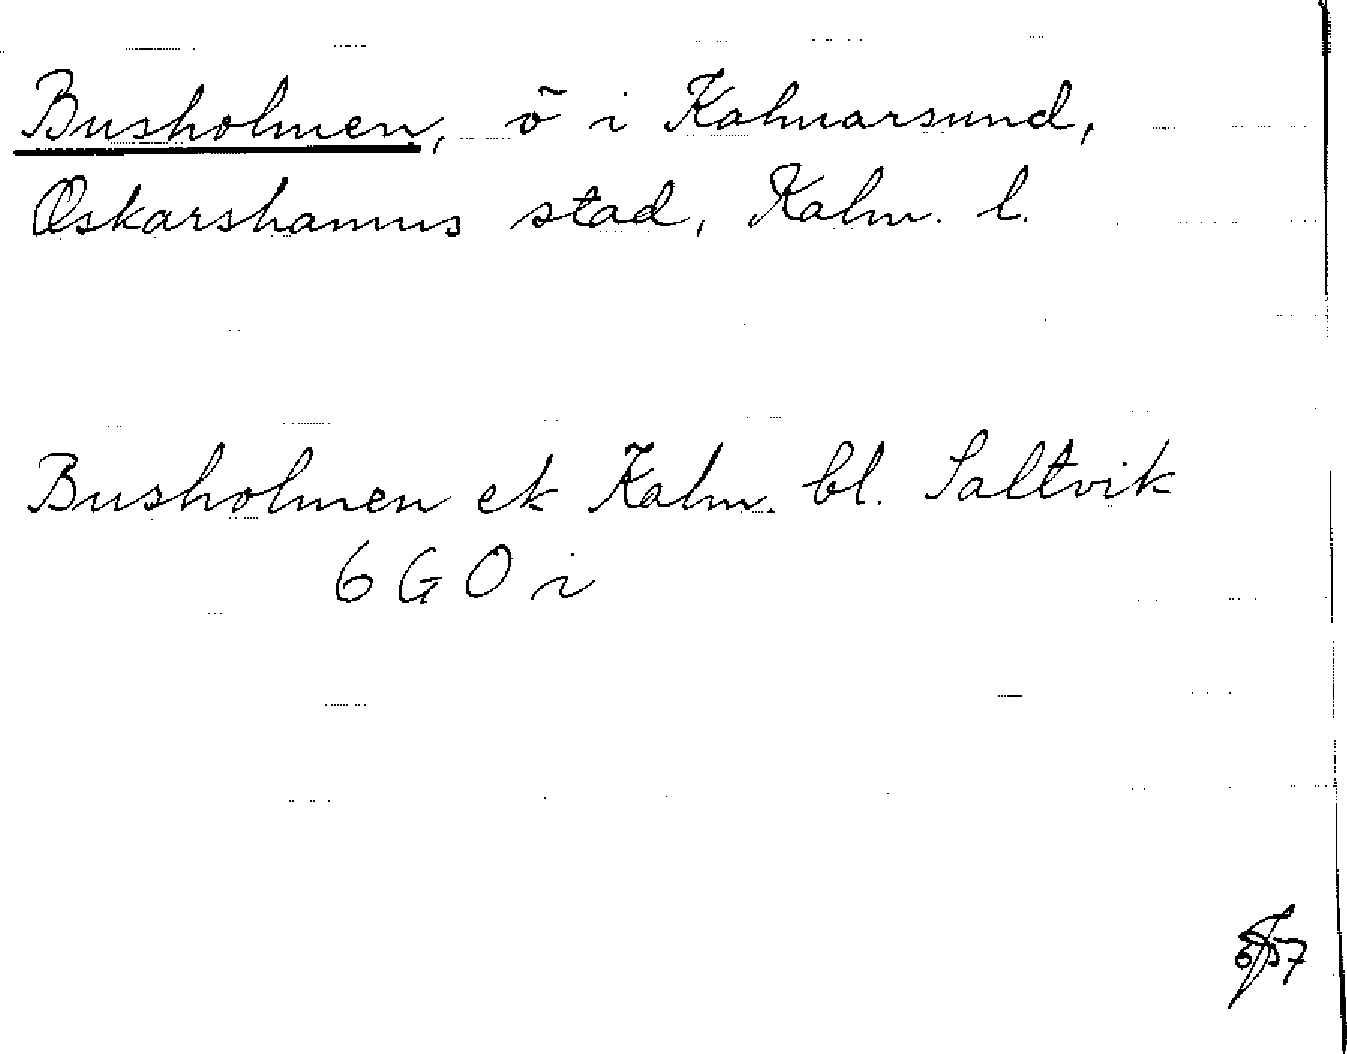 Busholmen, ö i Kalmarsund,
Oskarshamns stad, Kalm. l.
Busholmen ek Kalm. bl. Saltvik
6 G O i